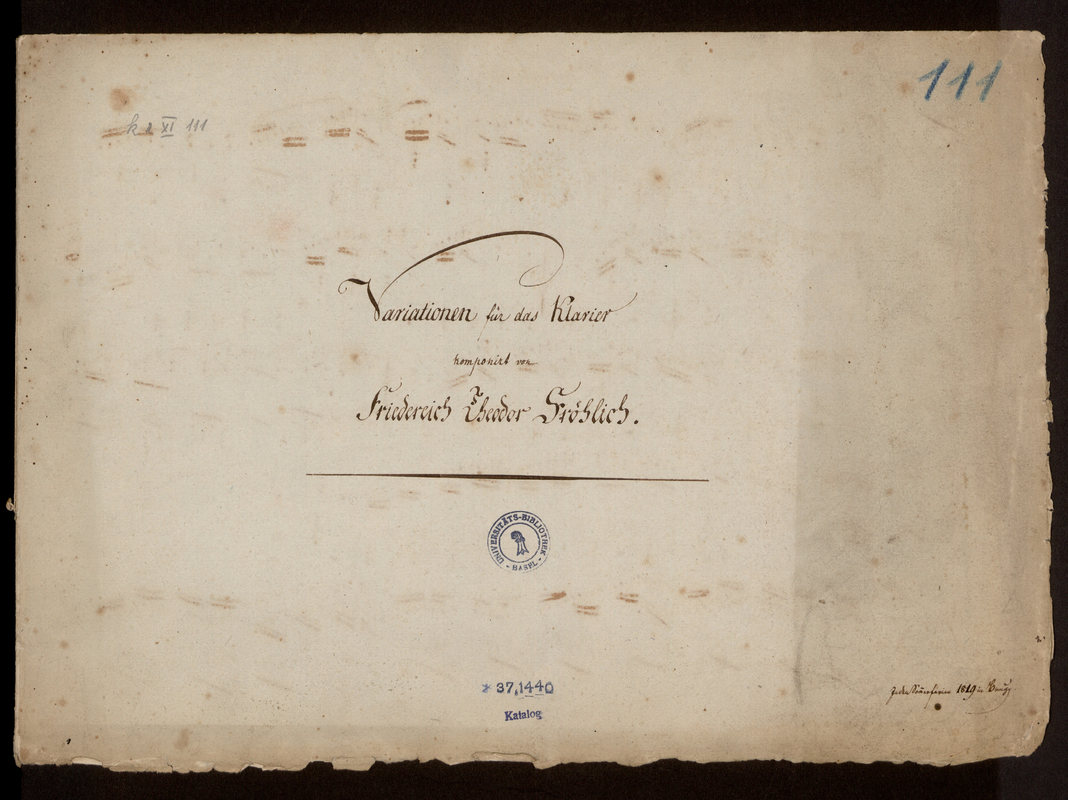 111
k r XI 111
Variationen für das Klavier
komponirt von
Friedereich Theodor Fröhlich.
UNIVERSITÄTS-BIBLIOTHEK
- BASEL -
* 37,1440
Katalog
In den 1819 in Brugg